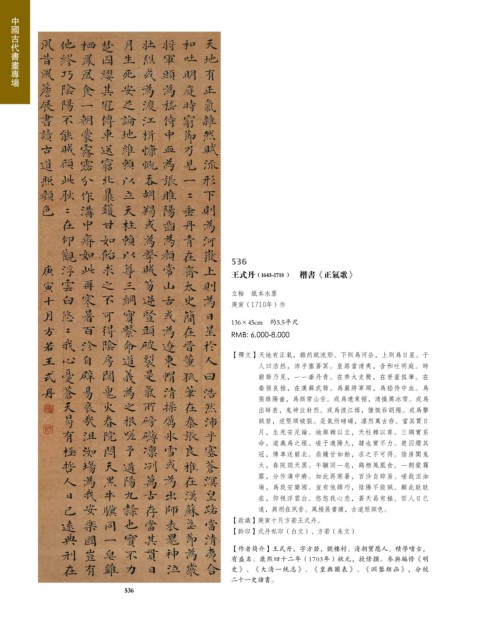 中國古代書畫專場
天地有正氣雜然賦流形下則為河嶽上則為日星於人曰浩然沛乎塞蒼溟皇路當清夷含
和吐明庭時窮節乃見一二垂丹青在齊太史簡在晉董狐筆在秦張良椎在漢蘇武節為嚴
將軍頭為嵇侍中血為張睢陽齒為顏常山舌或為遼東帽清操厲冰雪或為出師表鬼神泣
壯烈或為渡江楫慷慨吞胡羯或為擊賊笏逆豎頭破裂是氣所磅礴凜冽萬古存當其貫日
月生死安足論地維賴以立天柱賴以尊三綱實繫命道義為之根嗟予遘陽九隸也實不力
楚囚纓其冠傳車送窮北鼎鑊甘如飴求之不可得陰房闃鬼火春院閟天黑牛驥同一皂雞
栖鳳凰食一朝蒙霧露分作溝中瘠如此再寒暑百沴自辟易哀哉沮洳場為我安樂國豈有
他繆巧陰陽不能賊顧此耿〻在仰觀浮雲白悠〻我心憂蒼天曷有極哲人日已遠典刑在
夙昔風簷展書讀古道照顏色
庚寅十月方若王式丹
536
王式丹（1645-1718） 楷書《正氣歌》
立軸 紙本水墨
庚寅（1710年）作
136×45cm 約5.5平尺
RMB: 6,000-8,000
【釋文】天地有正氣，雜然賦流形。下則為河岳，上則為日星。于
人曰浩然，沛乎塞蒼冥。皇路當清夷，含和吐明庭。時
窮節乃見，一一垂丹青。在齊太史簡，在晉董狐筆。在
秦張良椎，在漢蘇武節。為嚴將軍頭，為嵇侍中血。為
張睢陽齒，為顏常山舌。或為遼東帽，清操厲冰雪。或為
出師表，鬼神泣壯烈。或為渡江楫，慷慨吞胡羯。或為擊
賊笏，逆豎頭破裂。是氣所磅礴，凜烈萬古存。當其貫日
月，生死安足論。地維賴以立，天柱賴以尊。三綱實系
命，道義為之根。嗟予遘陽九，隸也實不力。楚囚纓其
冠，傳車送窮北。鼎鑊甘如飴，求之不可得。陰房闃鬼
火，春院閟天黑。牛驥同一皂，雞棲鳳凰食。一朝蒙霧
露，分作溝中瘠。如此再寒暑，百沴自辟易。嗟哉沮洳
場，為我安樂國。豈有他繆巧，陰陽不能賊。顧此耿耿
在，仰視浮雲白。悠悠我心悲，蒼天曷有極。哲人日已
遠，典刑在夙昔。風檐展書讀，古道照顏色。
【款識】庚寅十月方若王式丹。
【鈐印】式丹私印（白文）、方若（朱文）
【作者簡介】王式丹，字方若，號樓村，清朝寶應人。積學嗜古，
有盛名。康熙四十二年（1703年）狀元，授修撰。參與編修《明
史》、《大清一統志》、《皇輿圖表》、《淵鑒類函》，分校
二十一史諸書。
536